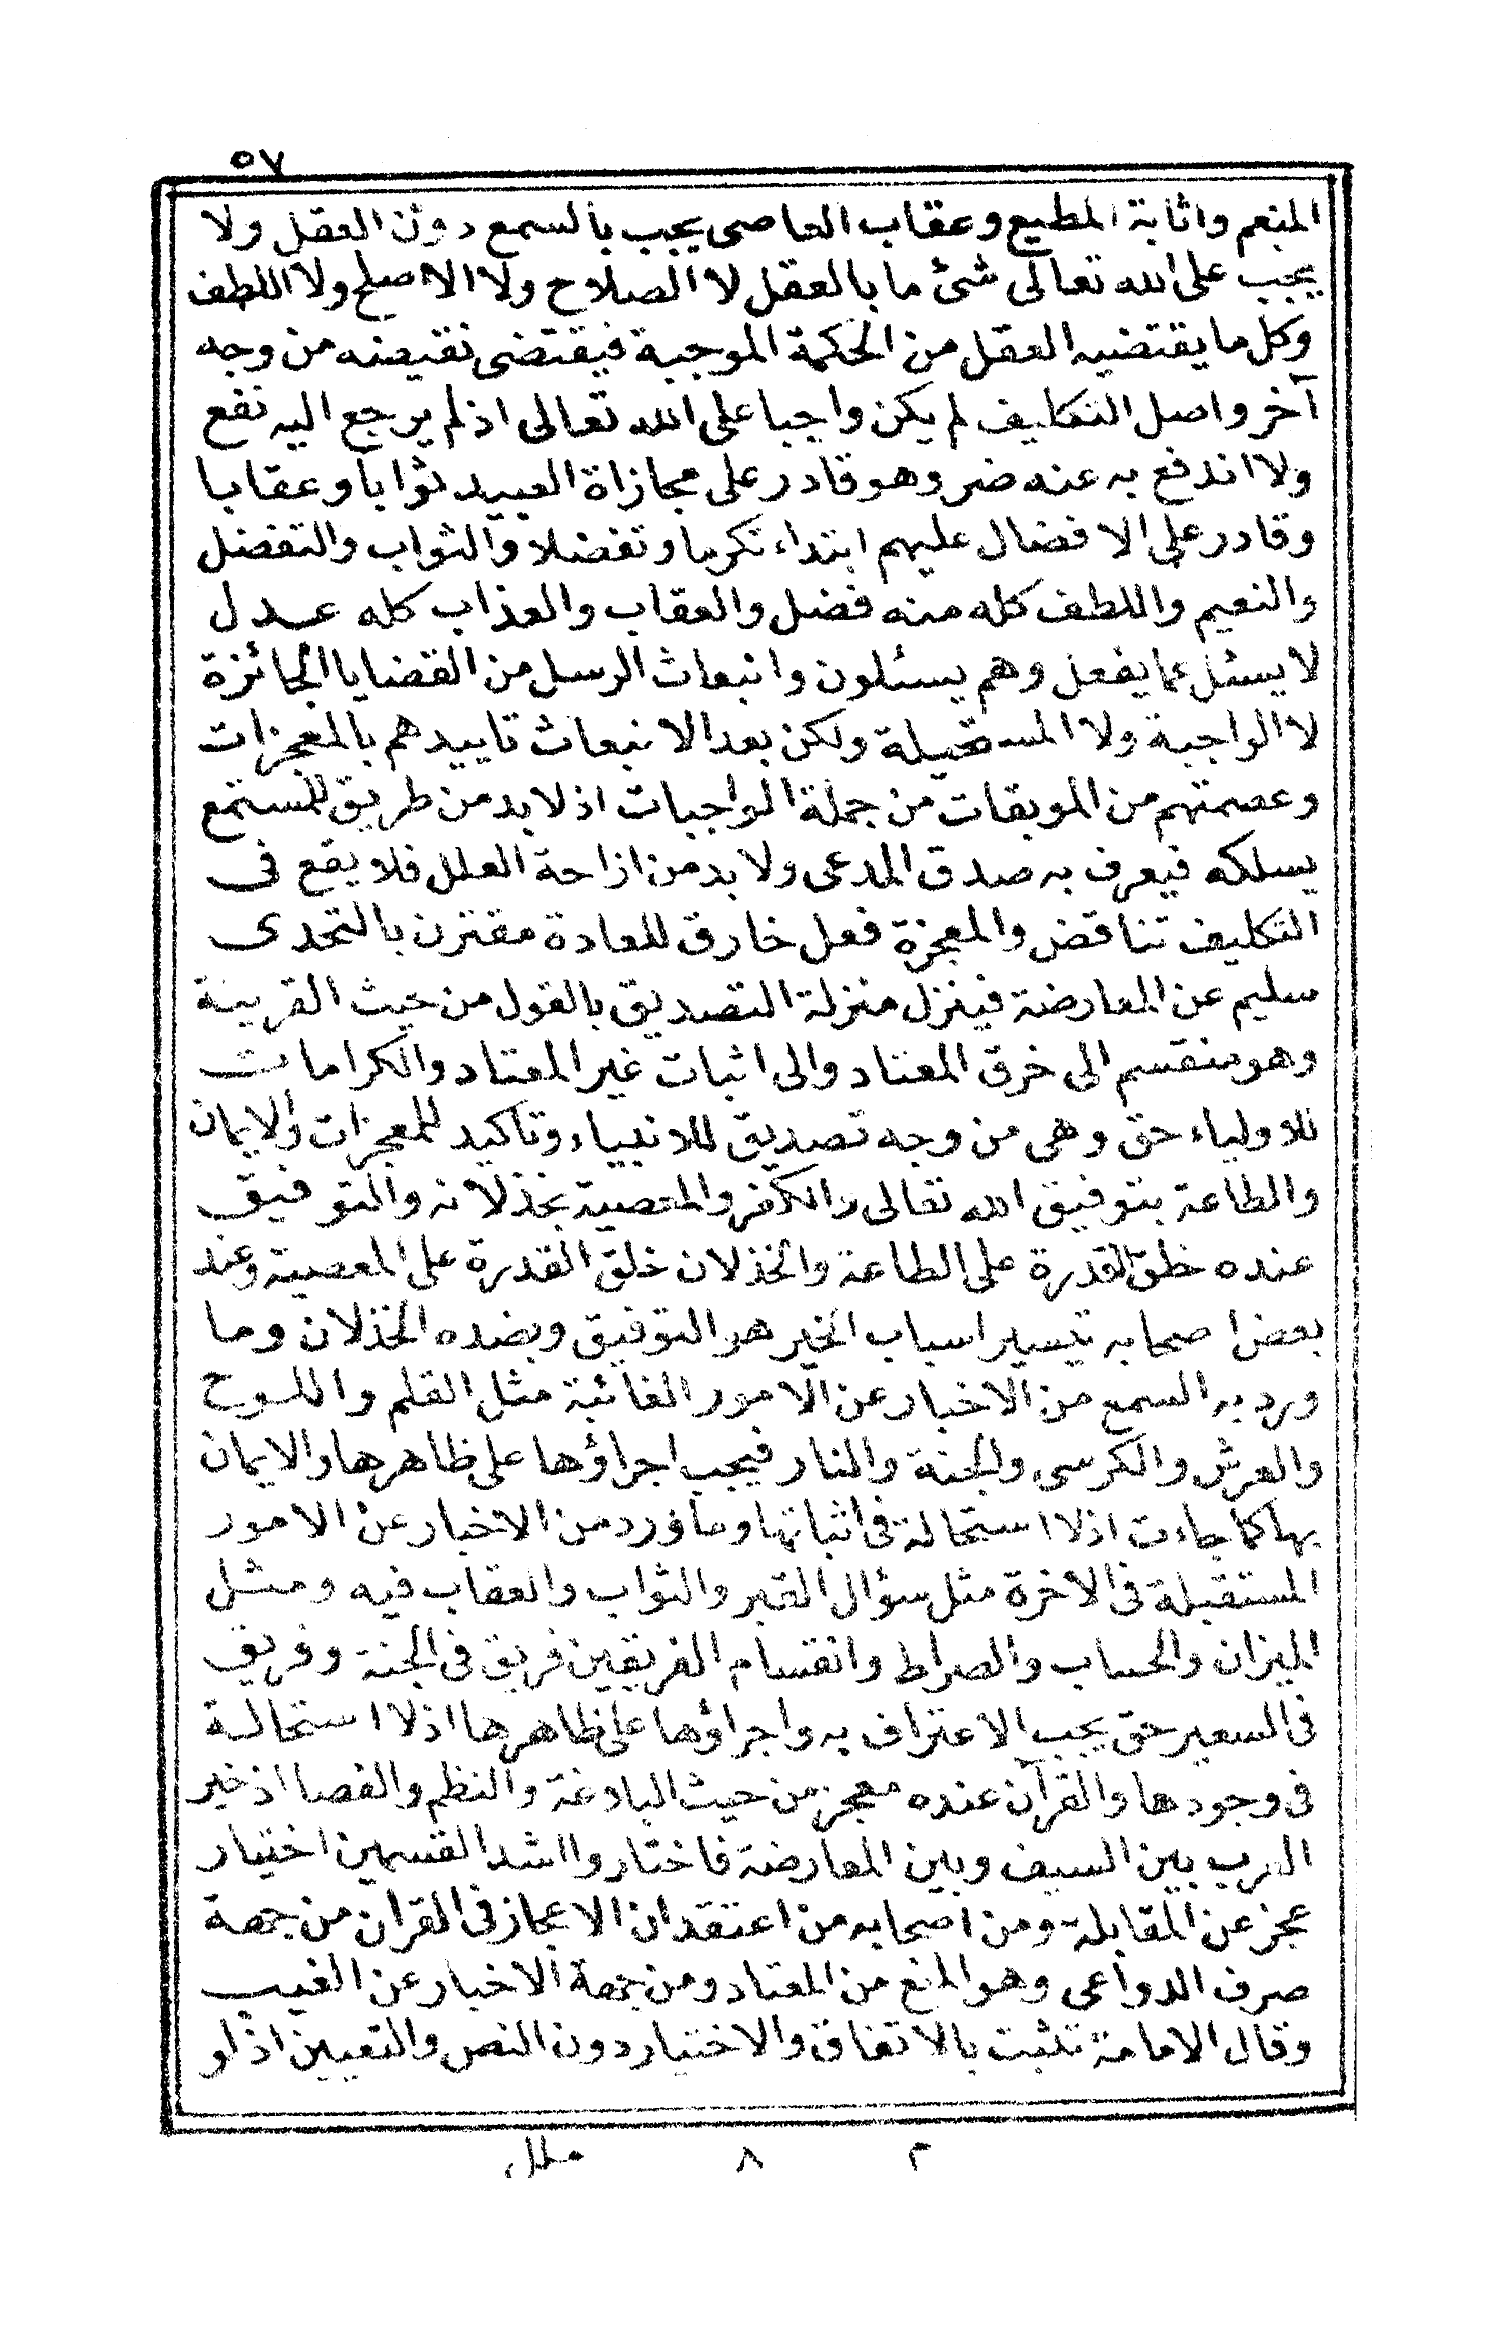 ٥٧
المنعم واثابة المطيع وعقاب العاصى يجب بالسمع دون العقل ولا
يجب على الله تعالى شئ ما بالعقل لا الصلاح ولا الاصلح ولا اللطف
وكل ما يقتضيه العقل من الحكمة الموجبة فيقتضى نقيضه من وجه
آخر واصل التكليف لم يكن واجبا على الله تعالى اذ لم يرجع اليه نفع
ولا اندفع به عنه ضر وهو قادر على مجازاة العبيد ثوابا وعقابا
وقادر على الافضال عليهم ابتداء تكرما وتفضلا والثواب والتفضل
والنعيم واللطف كله منه فضل والعقاب والعذاب كله عدل
لا يسئل عما يفعل وهم يسئلون وانبعاث الرسل من القضايا الجائزة
لا الواجبة ولا المستحيلة ولكن بعد الانبعاث تاييدهم بالمعجزات
وعصمتهم من الموبقات من جملة الواجبات اذ لا بد من طريق للمستمع
يسلكه فيعرف به صدق المدعى ولا بد من ازاحة العلل فلا يقع فى
التكليف تناقض والمعجزة فعل خارق للعادة مقترن بالتحدى
سليم عن المعارضة فينزل منزلة التصديق بالقول من حيث القرينة
وهو منقسم الى خرق المعتاد والى اثبات غير المعتاد والكرامات
للاولياء حق وهى من وجه تصديق للانبياء وتاكيد للمعجزات والايمان
والطاعة بتوفيق الله تعالى والكفر والمعصية بخذلانه والتوفيق
عنده خلق القدرة على الطاعة والخذلان خلق القدرة على المعصية وعند
بعض اصحابه تيسير اسباب الخير هو التوفيق وبضده الخذلان وما
ورد به السمع من الاخبار عن الامور الغائبة مثل القلم واللوح
والعرش والكرسى والجنة والنار فيجب اجراؤها على ظاهرها والايمان
بها كما جاءت اذ لا استحالة فى اثباتها وما ورد من الاخبار عن الامور
المستقبلة فى الاخرة مثل سؤال القبر والثواب والعقاب فيه ومثل
الميزان والحساب والصراط وانقسام الفريقين فريق فى الجنة وفريق
فى السعير حق يجب الاعتراف به واجراؤها على ظاهرها اذ لا استحالة
فى وجودها والقرآن عنده معجز من حيث البلاغة والنظم والفصا اذ خير
العرب بين السيف وبين المعارضة فاختاروا اشد القسمين اختيار
عجز عن المقابلة ومن اصحابه من اعتقد ان الاعجاز فى القران من جهة
صرف الدواعى وهو المنع من المعتاد ومن جهة الاخبار عن الغيب
وقال الامامة تثبت بالاتفاق والاختيار دون النص والتعيين اذ لو
م ٨ ملل